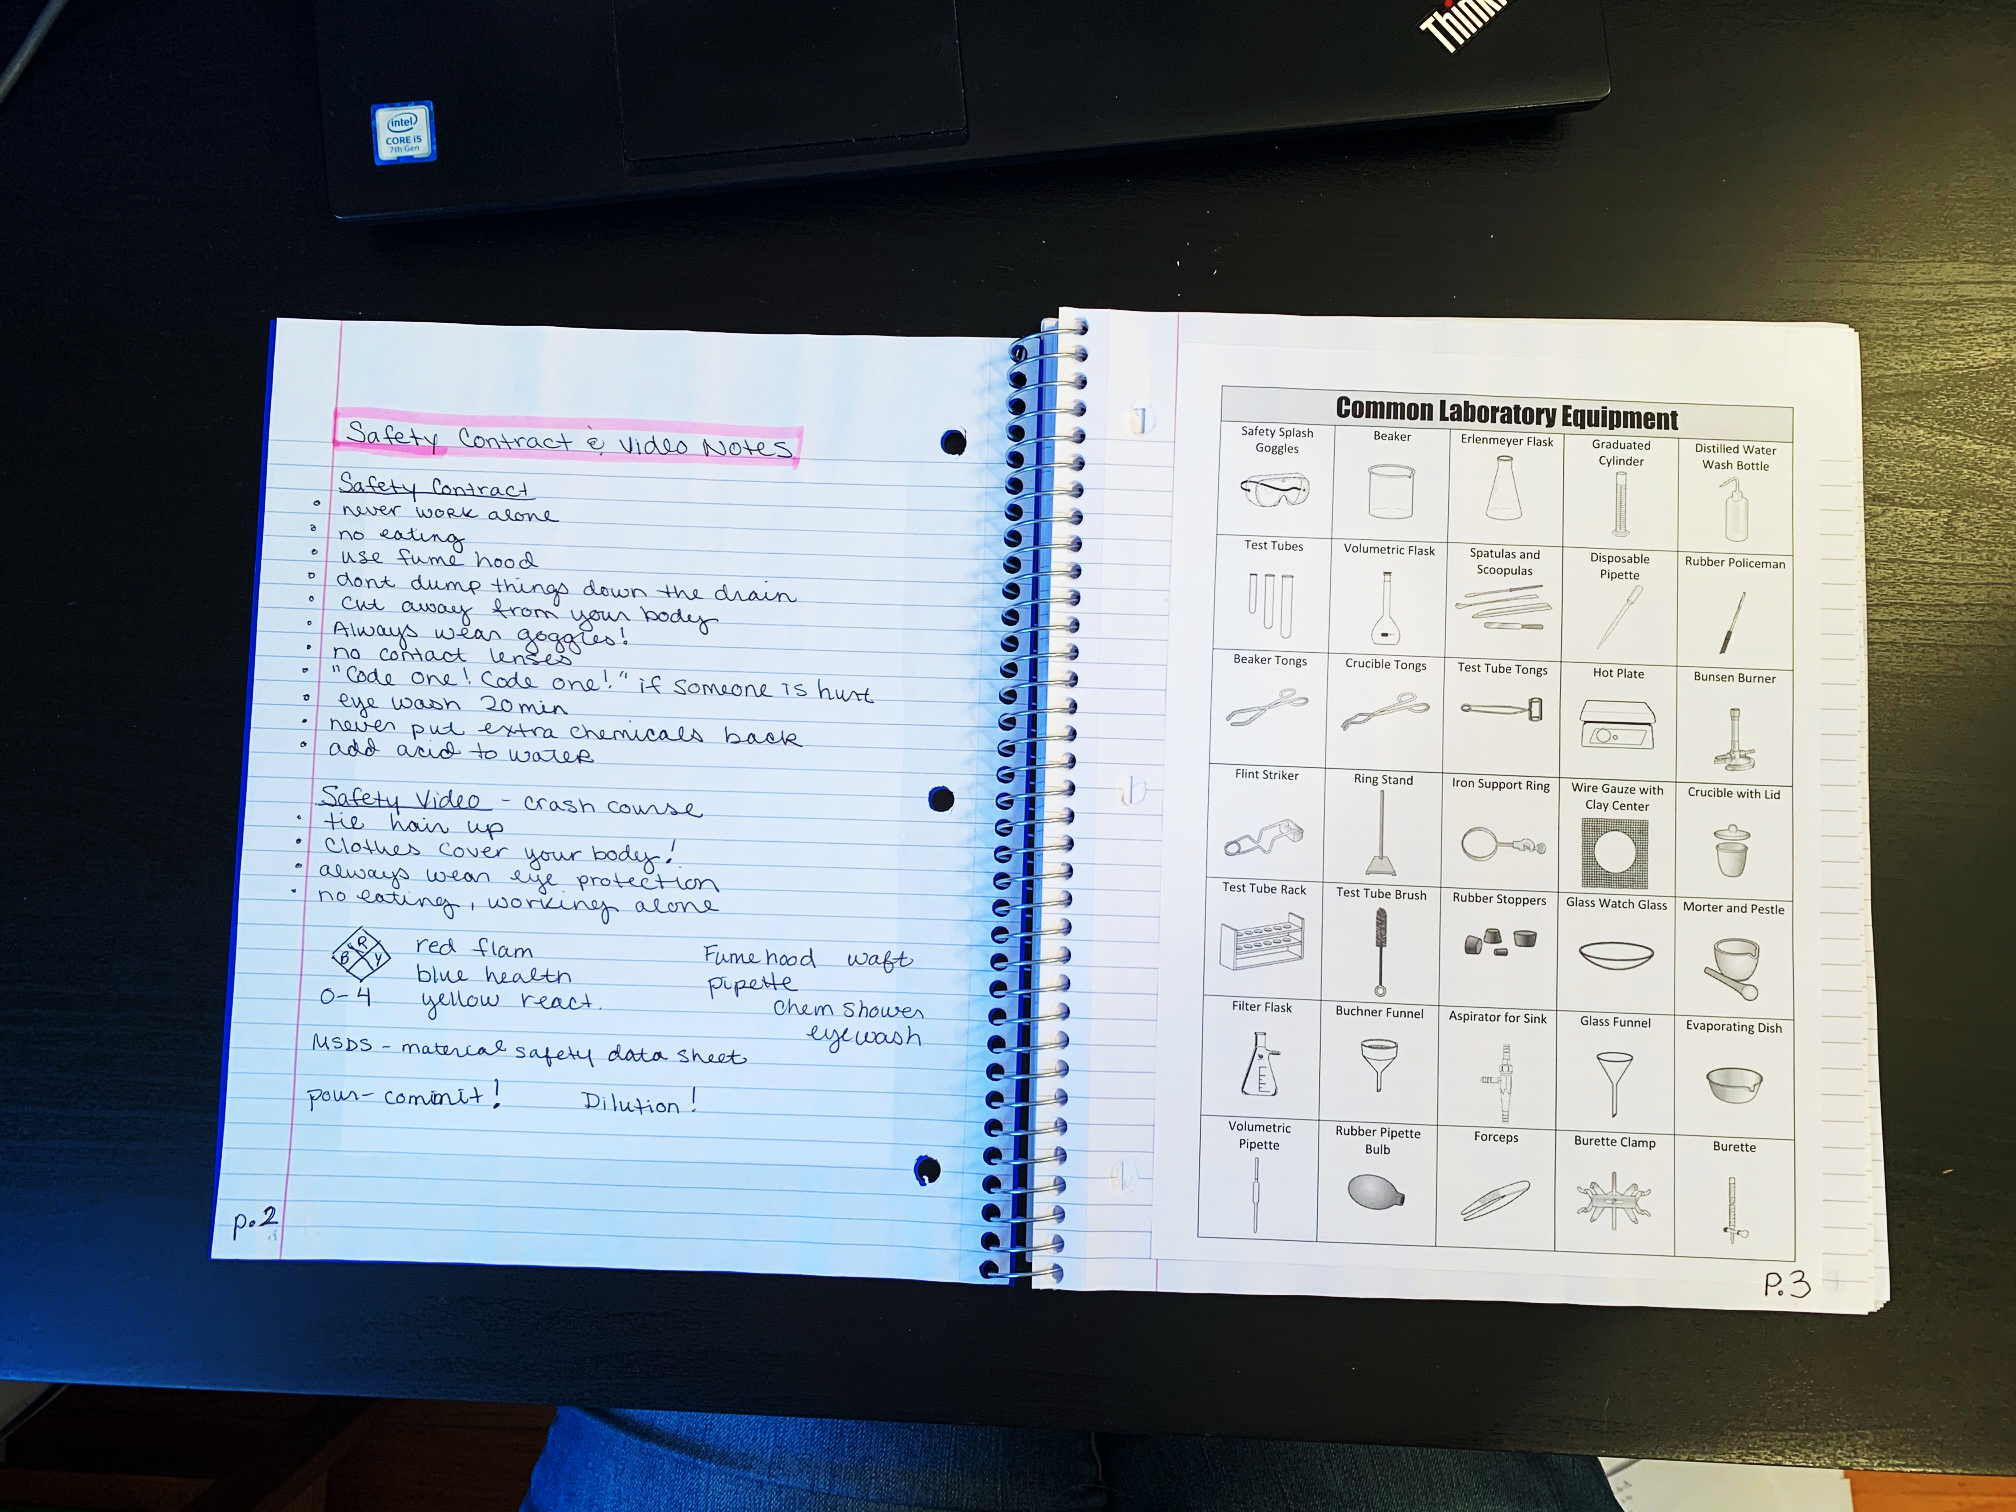 Think
intel
CORE i5
7th Gen
Safety Contract & Video Notes
Safety Contract
• never work alone
• no eating
• use fume hood
• dont dump things down the drain
• cut away from your body
• Always wear goggles!
• no contact lenses
• "Code one! Code one!" if someone is hurt
• eye wash 20min
• never put extra chemicals back
• add acid to water
Safety Video - crash course
• tie hair up
• clothes cover your body!
• always wear eye protection
• no eating, working alone
R
B Y
0-4
red flam
blue health
yellow react.
Fumehood waft
pipette
chem shower
eyewash
MSDS - material safety data sheet
pour- commit! Dilution!
p.2
Common Laboratory Equipment
Safety Splash
Goggles
Beaker
Erlenmeyer Flask
Graduated
Cylinder
Distilled Water
Wash Bottle
Test Tubes
Volumetric Flask
Spatulas and
Scoopulas
Disposable
Pipette
Rubber Policeman
Beaker Tongs
Crucible Tongs
Test Tube Tongs
Hot Plate
Bunsen Burner
Flint Striker
Ring Stand
Iron Support Ring
Wire Gauze with
Clay Center
Crucible with Lid
Test Tube Rack
Test Tube Brush
Rubber Stoppers
Glass Watch Glass
Morter and Pestle
Filter Flask
Buchner Funnel
Aspirator for Sink
Glass Funnel
Evaporating Dish
Volumetric
Pipette
Rubber Pipette
Bulb
Forceps
Burette Clamp
Burette
P.3